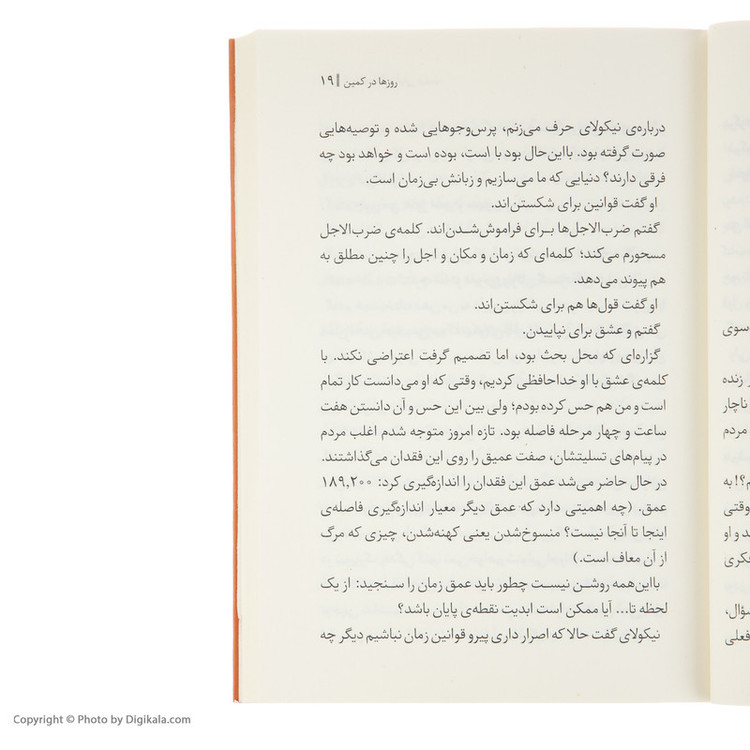 روزها در کمین ‖ ۱۹
درباره‌ی نیکولای حرف می‌زنم، پرس‌وجوهایی شده و توصیه‌هایی
صورت گرفته بود. بااین‌حال بود با است، بوده است و خواهد بود چه
فرقی دارند؟ دنیایی که ما می‌سازیم و زبانش بی‌زمان است.
او گفت قوانین برای شکستن‌اند.
گفتم ضرب‌الاجل‌ها بـرای فراموش‌شـدن‌اند. کلمه‌ی ضرب‌الاجل
مسحورم می‌کند؛ کلمه‌ای که زمان و مکان و اجل را چنین مطلق به
هم پیوند می‌دهد.
او گفت قول‌ها هم برای شکستن‌اند.
گفتم و عشق برای نپاییدن.
گزاره‌ای که محل بحث بود، اما تصمیم گرفت اعتراضی نکند. با
کلمه‌ی عشق با او خداحافظی کردیم، وقتی که او می‌دانست کار تمام
است و من هم حس کرده بودم؛ ولی بین این حس و آن دانستن هفت
ساعت و چهار مرحله فاصله بود. تازه امروز متوجه شدم اغلب مردم
در پیام‌های تسلیتشان، صفت عمیق را روی این فقدان می‌گذاشتند.
در حال حاضر می‌شد عمق این فقدان را اندازه‌گیری کرد: ۱۸۹,۲۰۰
عمق. (چه اهمیتی دارد که عمق دیگر معیار اندازه‌گیری فاصله‌ی
اینجا تا آنجا نیست؟ منسوخ‌شدن یعنی کهنه‌شدن، چیزی که مرگ
از آن معاف است.)
بااین‌همه روشـن نیسـت چطور باید عمق زمان را سـنجید: از یک
لحظه تا... آیا ممکن است ابدیت نقطه‌ی پایان باشد؟
نیکولای گفت حالا که اصرار داری پیرو قوانین زمان نباشیم دیگر چه
سوی
زنده
ناچار
مردم
م؟! به
وقتی
د و او
فکری
سؤال،
فعلی
Copyright © Photo by Digikala.com